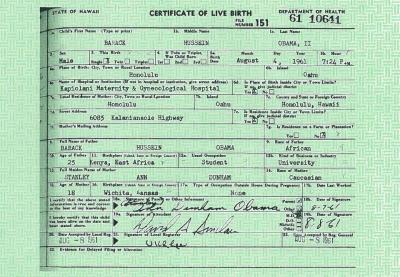 STATE OF HAWAII CERTIFICATE OF LIVE BIRTH DEPARTMENT OF HEALTH
FILE NUMBER 151 61 10641
1a. Child's First Name (Type or print) 1b. Middle Name 1c. Last Name
BARACK HUSSEIN OBAMA, II
2. Sex 3. This Birth 4. If Twin or Triplet, Month Day Year 5b. Hour
Male Single Twin Triplet 1st 2nd 3rd August 4, 1961 7:24 P.M.
6a. Place of Birth: City, Town or Rural Location 6b. Island
Honolulu Oahu
6c. Name of Hospital or Institution (If not in hospital or institution, give street address) 6d. Is Place of Birth Inside City or Town Limits?
Kapiolani Maternity & Gynecological Hospital Yes No
7a. Usual Residence of Mother: City, Town or Rural Location 7b. Island 7c. County and State or Foreign Country
Honolulu Oahu Honolulu, Hawaii
7d. Street Address 7e. Is Residence Inside City or Town Limits?
6085 Kalanianaole Highway Yes No
7f. Mother's Mailing Address 7g. Is Residence on a Farm or Plantation?
Yes No
8. Full Name of Father 9. Race of Father
BARACK HUSSEIN OBAMA African
10. Age of Father 11. Birthplace 12a. Usual Occupation 12b. Kind of Business or Industry
25 Kenya, East Africa Student University
13. Full Maiden Name of Mother 14. Race of Mother
STANLEY ANN DUNHAM Caucasian
15. Age of Mother 16. Birthplace 17a. Type of Occupation Outside Home During Pregnancy 17b. Date Last Worked
18 Wichita, Kansas None
I certify that the above stated information is true and correct to the best of my knowledge. 18a. Signature of Parent or Other Informant Parent 18b. Date of Signature
Ann Dunham Obama 8-7-61
I hereby certify that this child was born alive on the date and hour stated above. 19a. Signature of Attendant M.D. 19b. Date of Signature
8-8-61
20. Date Accepted by Local Reg. 21. Signature of Local Registrar 22. Date Accepted by Reg. General
AUG -8 1961 AUG -8 1961
23. Evidence for Delayed Filing or Alteration